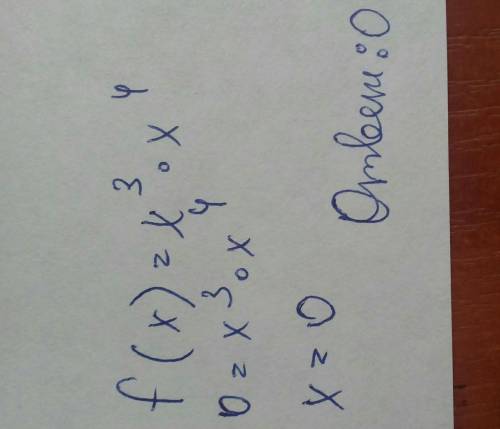 f(x) = x³∘x⁴
0 = x³∘x⁴
x = 0
Ответ: 0